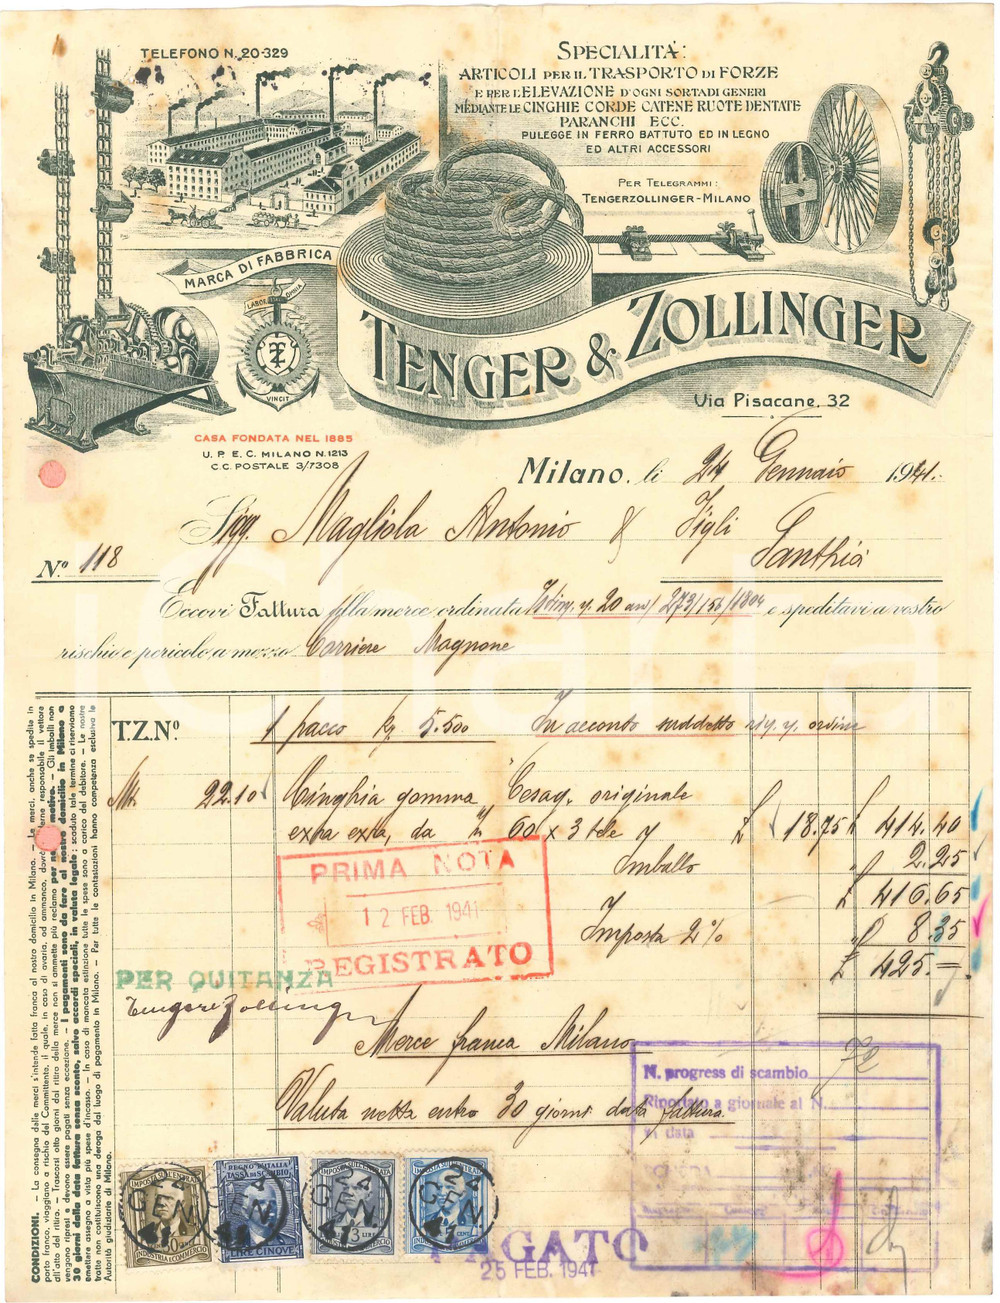 TELEFONO N. 20-329
SPECIALITÀ:
ARTICOLI PER IL TRASPORTO DI FORZE
E PER L'ELEVAZIONE D'OGNI SORTA DI GENERI
MEDIANTE LE CINGHIE CORDE CATENE RUOTE DENTATE
PARANCHI ECC.
PULEGGE IN FERRO BATTUTO ED IN LEGNO
ED ALTRI ACCESSORI
PER TELEGRAMMI:
TENGERZOLLINGER-MILANO
MARCA DI FABBRICA
LABOR OMNIA
VINCIT
TENGER & ZOLLINGER
Via Pisacane, 32
CASA FONDATA NEL 1885
U. P. E. C. MILANO N. 1213
C.C. POSTALE 3/7308
Milano, li 24 Gennaio 1941.
Sigg. Magliola Antonio & Figli
Santhià
N.º 118
Eccovi Fattura della merce ordinata 20 273/156/1804 e speditavi a vostro
rischio e pericolo a mezzo Corriere Magnone
T.Z.Nº
1 pacco kg 5.500 In acconto suddetto ordine
Mt. 22.10 Cinghia gomma "Cesaq. originale
extra extra, da m/m 60 x 3 tele £ 18.75 £ 414.40
Imballo " 2.25
£ 416.65
Imposta 2% " 8.35
£ 425.=
PRIMA NOTA
12 FEB. 1941
REGISTRATO
PER QUITANZA
Tenger e Zollinger
Merce franca Milano
72
Valuta netta entro 30 giorni data fattura.
N. progress di scambio
Riportato a giornale al N.
in data
IMPOSTA SULL'ENTRATA
INDUSTRIA E COMMERCIO
REGNO D'ITALIA
TASSA DI SCAMBIO
LIRE CINQUE
IMPOSTA SULL'ENTRATA
3 LIRE
IMPOSTA SULL'ENTRATA
24 GEN 41
PAGATO
25 FEB. 1941
CONDIZIONI. — La consegna delle merci s'intende fatta franca al nostro domicilio in Milano. — Le merci, anche se spedite in
porto franco, viaggiano a rischio del Committente, il quale, in caso di avaria, od ammanco, dovrà tenerne responsabile il vettore
all'atto del ritiro. — Trascorsi otto giorni dal ritiro della merce non si ammette più reclamo per nessun motivo. — Gli imballi non
vengono ripresi e devono essere pagati senza eccezione. — I pagamenti sono da fare al nostro domicilio in Milano a
30 giorni dalla data fattura senza sconto, salvo accordi speciali, in valuta legale; scaduto tale termine ci riserviamo
emettere assegno a vista più spese d'incasso. — In caso di mancata estinzione tutte le spese sono a carico del debitore. — Le nostre
tratte non costituiscono una deroga dal luogo di pagamento in Milano. — Per tutte le contestazioni hanno competenza esclusiva le
Autorità giudiziarie di Milano.